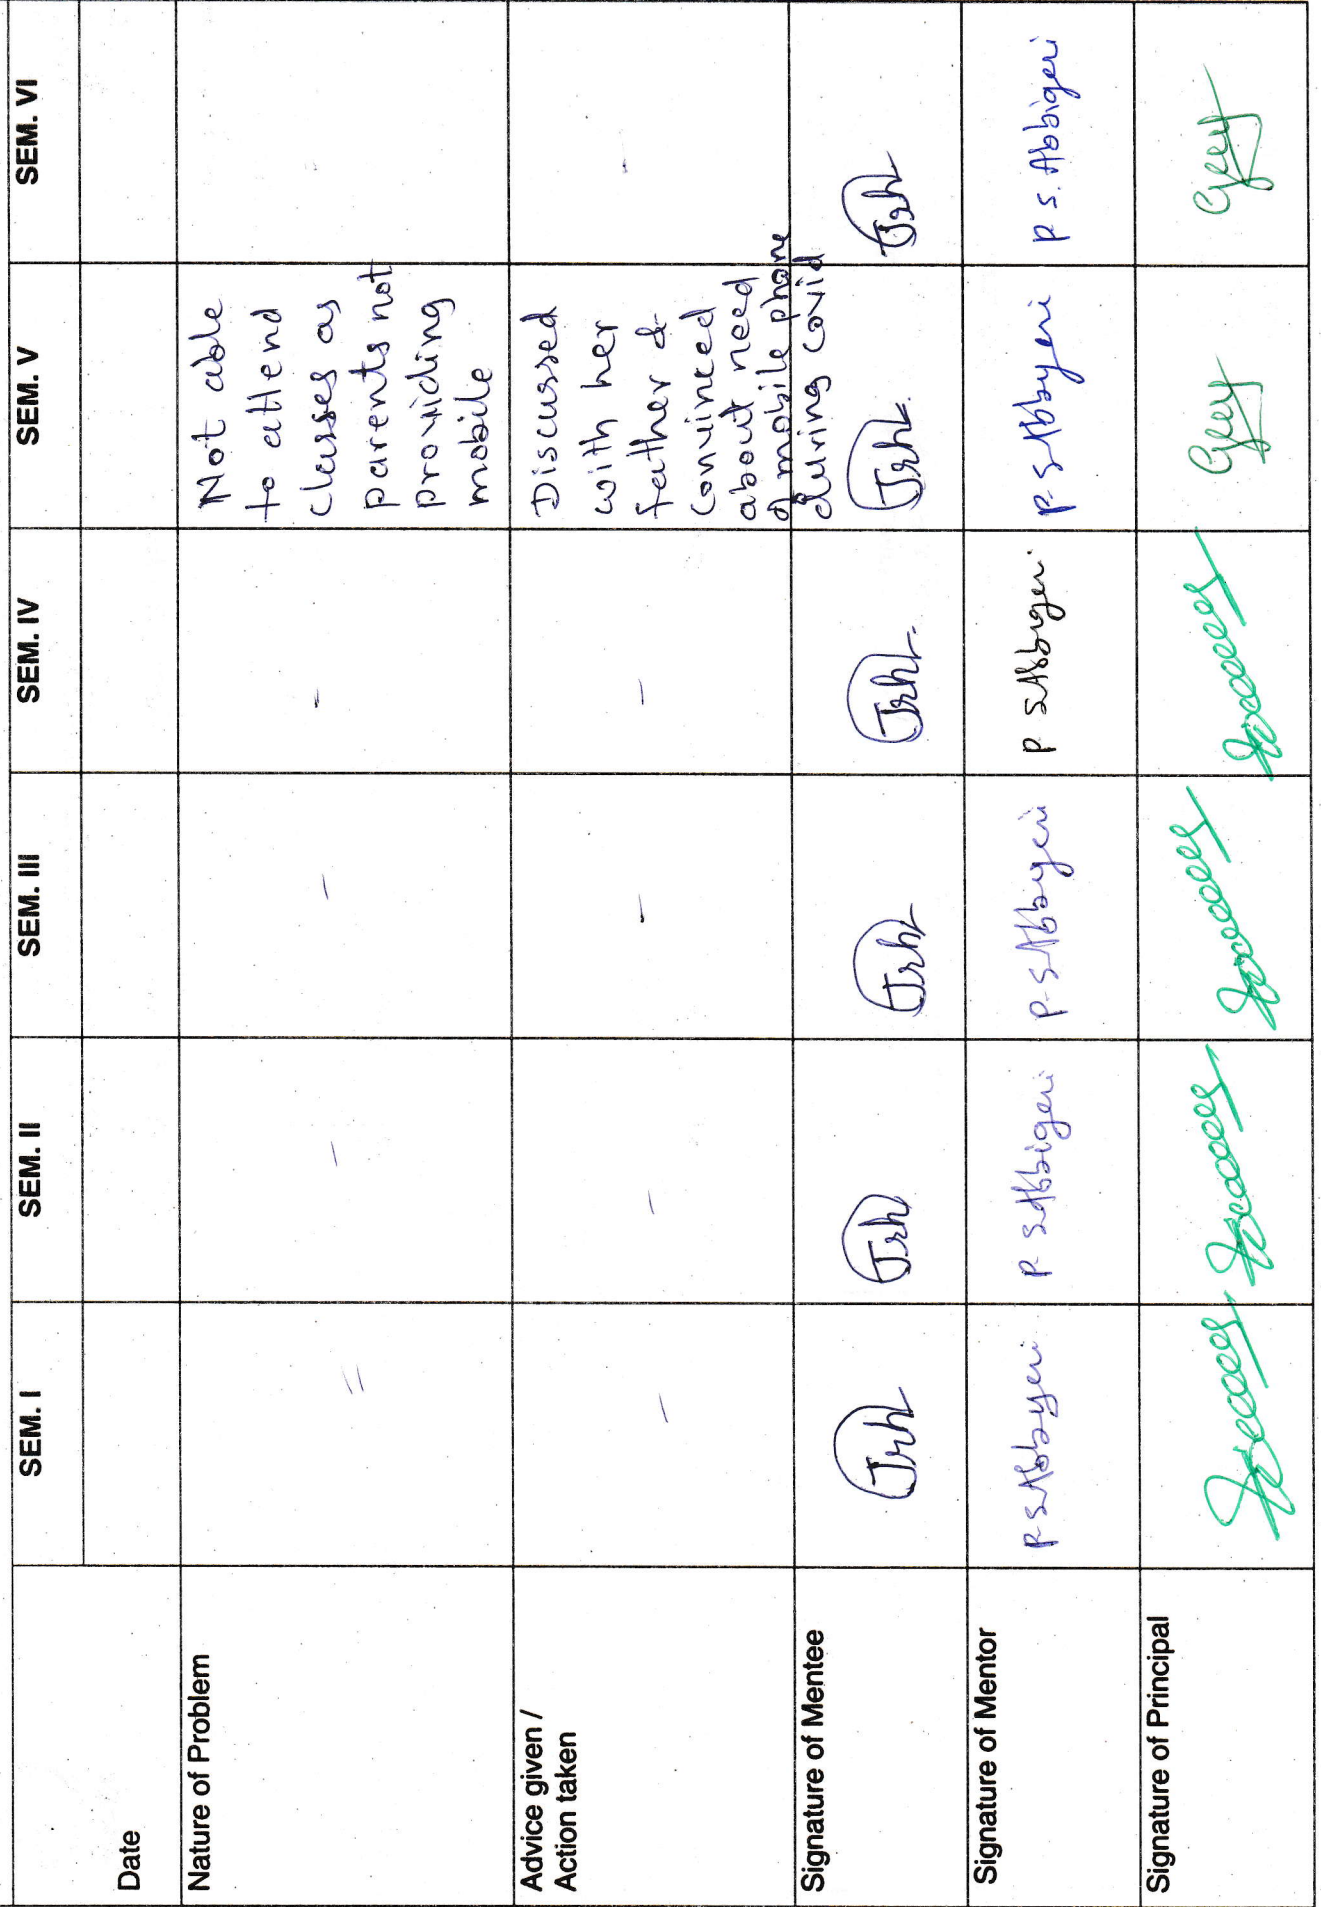 SEM. I SEM. II SEM. III SEM. IV SEM. V SEM. VI
Date
Nature of Problem
Not able
to attend
classes as
parents not
providing
mobile
Advice given /
Action taken
Discussed
with her
father &
convinced
about need
of mobile phone
during covid
Signature of Mentee
Signature of Mentor
P S Abbigeri P S Abbigeri P S Abbigeri P S Abbigeri P S Abbigeri P S. Abbigeri
Signature of Principal